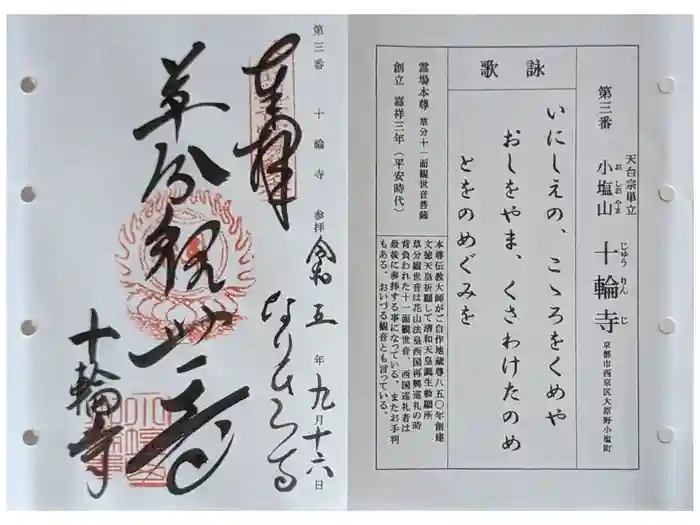 第三番 小塩山 十輪寺
おしおやま じゅうりんじ
天台宗単立
京都市西京区大原野小塩町
詠歌
いにしえの、こゝろをくめや
おしをやま、くさわけたのめ
とをのめぐみを
霊場本尊 草分十一面観世音菩薩
創立 嘉祥三年(平安時代)
本尊伝教大師がご自作地蔵尊八五〇年創建
文徳天皇祈願して清和天皇誕生勅願所
草分観世音は花山法皇西国再興巡礼の時
背負われた十一面観世音、西国巡礼者は
最後に参拝する事になっている。またお手判
もある。おいづる観音とも言っている。
第三番 十輪寺 参拝 令和五年九月十六日
奉拝
草分観世音
なりひら寺
十輪寺